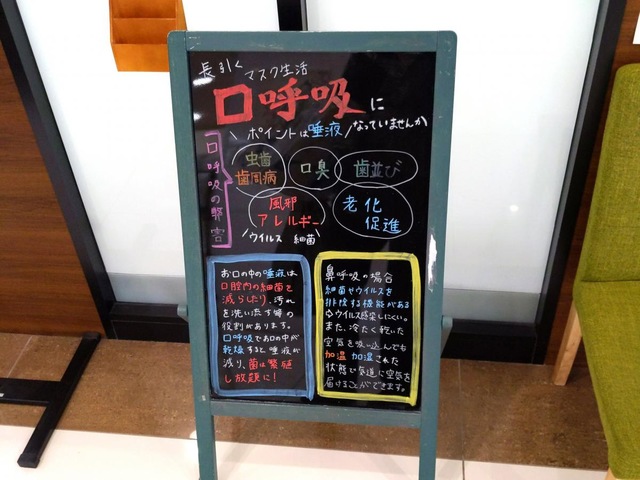 長引く
マスク生活
口呼吸に
なっていませんか
ポイントは唾液
口呼吸の弊害
虫歯
歯周病
口臭
歯並び
風邪
アレルギー
ウイルス 細菌
老化
促進
お口の中の唾液は
口腔内の細菌を
減らしたり、汚れ
を洗い流す等の
役割があります。
口呼吸でお口の中が
乾燥すると唾液が
減り、菌は繁殖
し放題に!
鼻呼吸の場合
細菌やウイルスを
排除する機能がある
⇨ウイルス感染しにくい。
また、冷たく乾いた
空気を吸い込んでも
加温 加湿された
状態で気道に空気を
届けることができます。